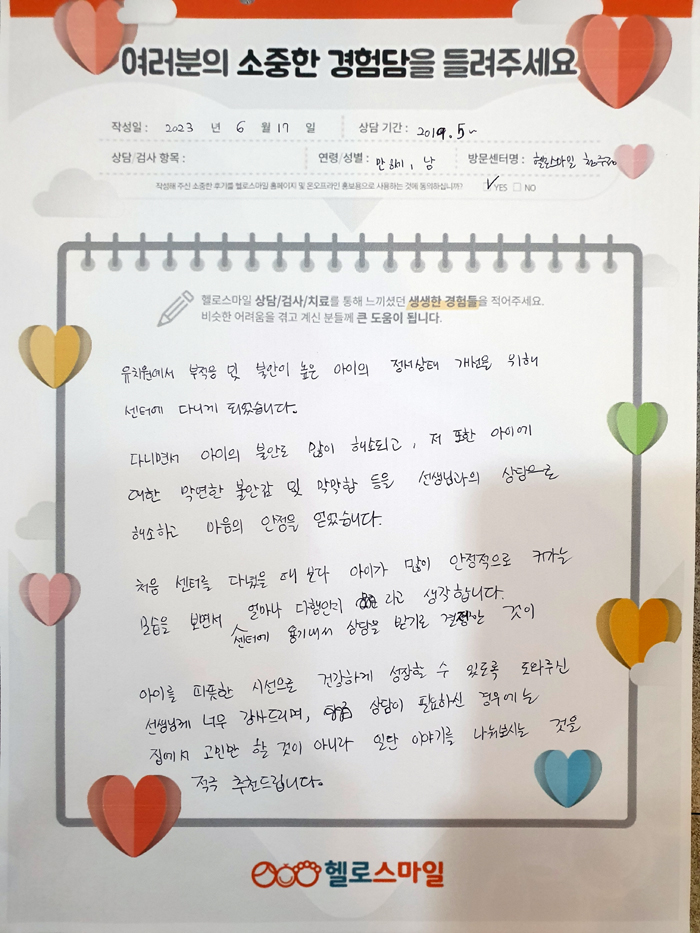 여러분의 소중한 경험담을 들려주세요
작성일 : 2023 년 6 월 17 일 상담 기간 : 2019. 5~
상담/검사 항목 : 연령/성별 : 만 8세, 남 방문센터명 : 헬로스마일
작성해 주신 소중한 후기를 헬로스마일 홈페이지 및 온오프라인 홍보용으로 사용하는 것에 동의하십니까? ✓YES □ NO
헬로스마일 상담/검사/치료를 통해 느끼셨던 생생한 경험들을 적어주세요.
비슷한 어려움을 겪고 계신 분들께 큰 도움이 됩니다.
유치원에서 부적응 및 불안이 높은 아이의 정서상태 개선을 위해
센터에 다니게 되었습니다.
다니면서 아이의 불안도 많이 해소되고, 저 또한 아이에
대한 막연한 불안감 및 막막함 등을 선생님과의 상담으로
해소하고 마음의 안정을 얻었습니다.
처음 센터를 다녔을 때 보다 아이가 많이 안정적으로 커가는
모습을 보면서 얼마나 다행인지 라고 생각합니다.
센터에 용기내서 상담을 받기로 결정한 것이
아이를 따뜻한 시선으로 건강하게 성장할 수 있도록 도와주신
선생님께 너무 감사드리며, 상담이 필요하신 경우에는
집에서 고민만 할 것이 아니라 일단 이야기를 나눠보시는 것을
적극 추천드립니다.
헬로스마일